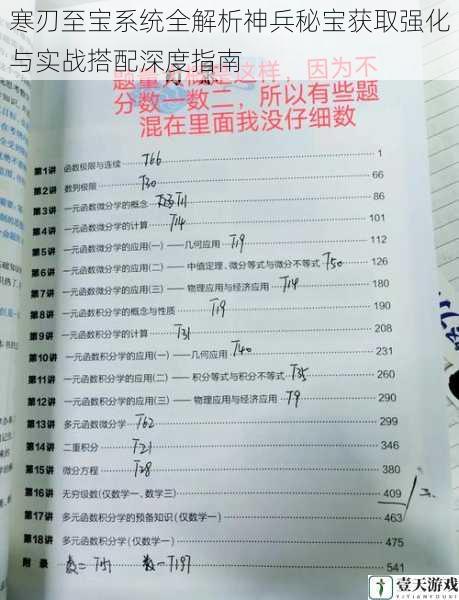 寒刃至宝系统全解析神兵秘宝获取强化
与实战搭配深度指南
题量大概是这样，因为不
分数一数二，所以有些题
混在里面我没仔细数
第1讲 函数极限与连续 T66 1
第2讲 数列极限 T30 66
第3讲 一元函数微分学的概念 T11 86
第4讲 一元函数微分学的计算 T14 101
第5讲 一元函数微分学的应用(一)——几何应用 T19 112
第6讲 一元函数微分学的应用(二)——中值定理、微分等式与微分不等式 T50 126
第7讲 一元函数微分学的应用(三)——物理应用与经济应用 T14 180
第8讲 一元函数积分学的概念与性质 T19 190
第9讲 一元函数积分学的计算 T31 208
第10讲 一元函数积分学的应用(一)——几何应用 T40 231
第11讲 一元函数积分学的应用(二)——积分等式与积分不等式 T35 260
第12讲 一元函数积分学的应用(三)——物理应用与经济应用 T9 290
第13讲 多元函数微分学 T62 299
第14讲 二重积分 T21 346
第15讲 微分方程 T28 380
第16讲 无穷级数(仅数学一、数学三) 409
第17讲 多元函数积分学的预备知识(仅数学一) 463
第18讲 多元函数积分学(仅数学一) 475
附录 数二 T151 数一 T197 541
壹天游戏
YITIANYOUXI